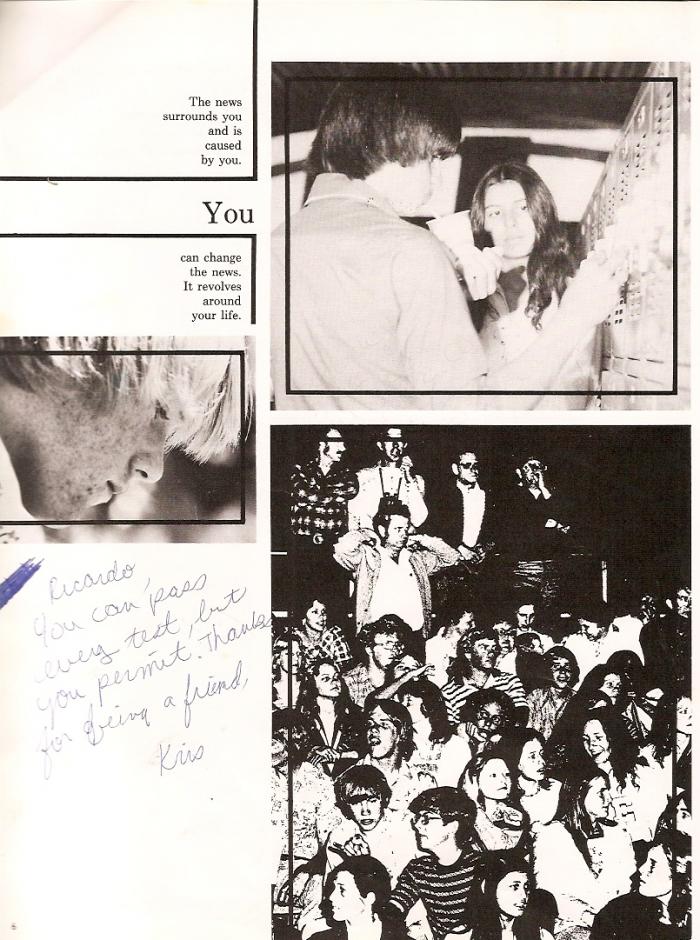 The news
surrounds you
and is
caused
by you.
You
can change
the news.
It revolves
around
your life.
Ricardo,
You can pass
every test, but
you permit. Thanks
for being a friend,
Kris
6